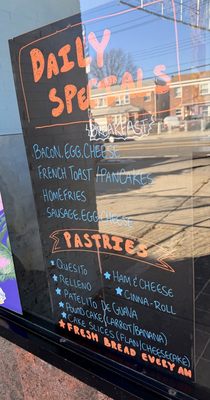 DAILY
SPECIALS
BREAKFAST
BACON, EGG, CHEESE
FRENCH TOAST + PANCAKES
HOMEFRIES
SAUSAGE, EGG, CHEESE
PASTRIES
QUESITO
RELLENO
PATELITO DE GUAVA
POUND CAKE (CARROT/BANANA)
CAKE SLICES (FLAN/CHEESECAKE)
HAM & CHEESE
CINNA-ROLL
FRESH BREAD EVERY AM